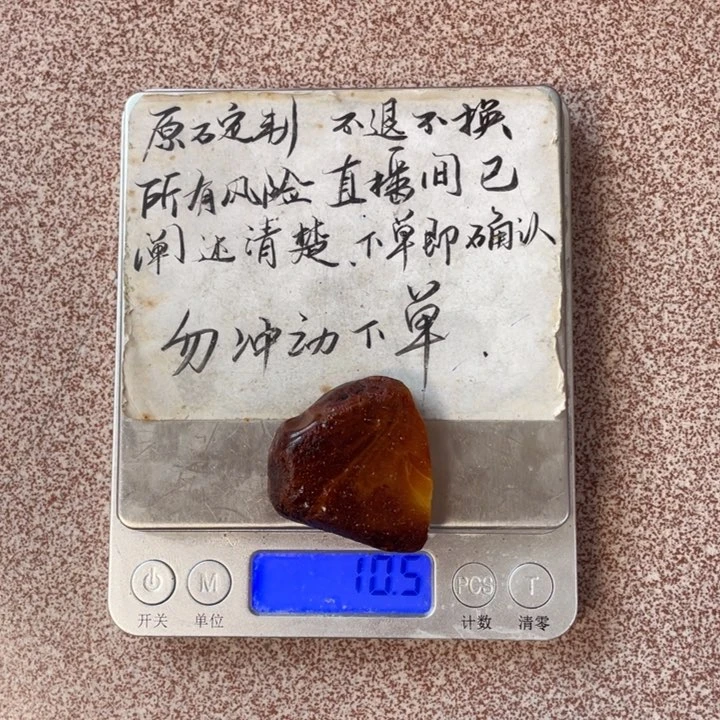 原石定制 不退不换
所有风险 直播间已
阐述清楚、下单即确认
勿冲动下单.
M 10.5 PCS T
开关 单位 计数 清零